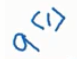 a⟨1⟩